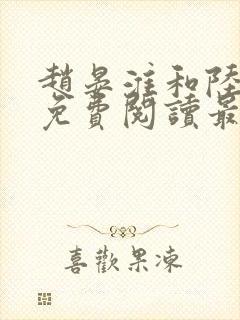 趙晏淮和陸
免費閱讀最
喜歡果凍